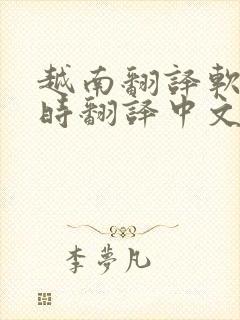 越南翻譯軟
時翻譯中文
李夢凡